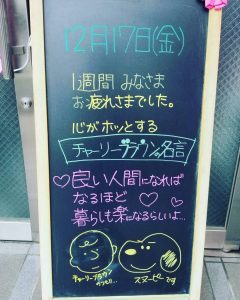 12月17日(金)
1週間 みなさま
お疲れさまでした。
心がホッとする
チャーリーブラウンの名言
良い人間になれば
なるほど
暮らしも楽になるらしいよ…
チャーリーブラウン
スヌーピーです